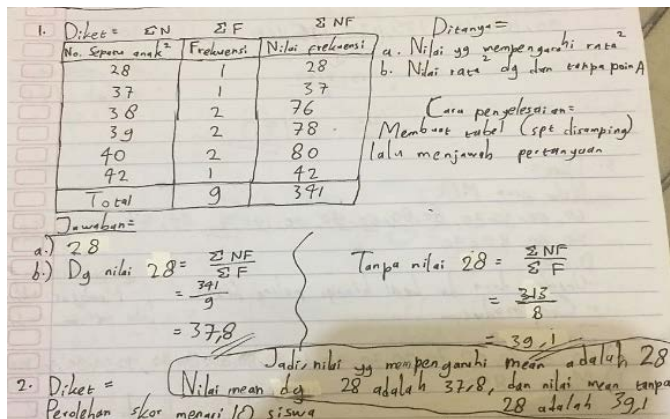 1. Diket = ΣN ΣF ΣNF
No. Sepatu anak² Frekuensi Nilai frekuensi
28 1 28
37 1 37
38 2 76
39 2 78
40 2 80
42 1 42
Total 9 341
Ditanya =
a. Nilai yg mempengaruhi rata²
b. Nilai rata² dg dan tanpa poin A
Cara penyelesaian =
Membuat tabel (spt disamping)
lalu menjawab pertanyaan
Jawaban =
a.) 28
b.) Dg nilai 28 = ΣNF / ΣF
= 341 / 9
= 37,8
Tanpa nilai 28 = ΣNF / ΣF
= 313 / 8
= 39,1
Jadi, nilai yg mempengaruhi mean adalah 28
Nilai mean dg 28 adalah 37,8, dan nilai mean tanpa
28 adalah 39,1
2. Diket =
Perolehan skor menari 10 siswa